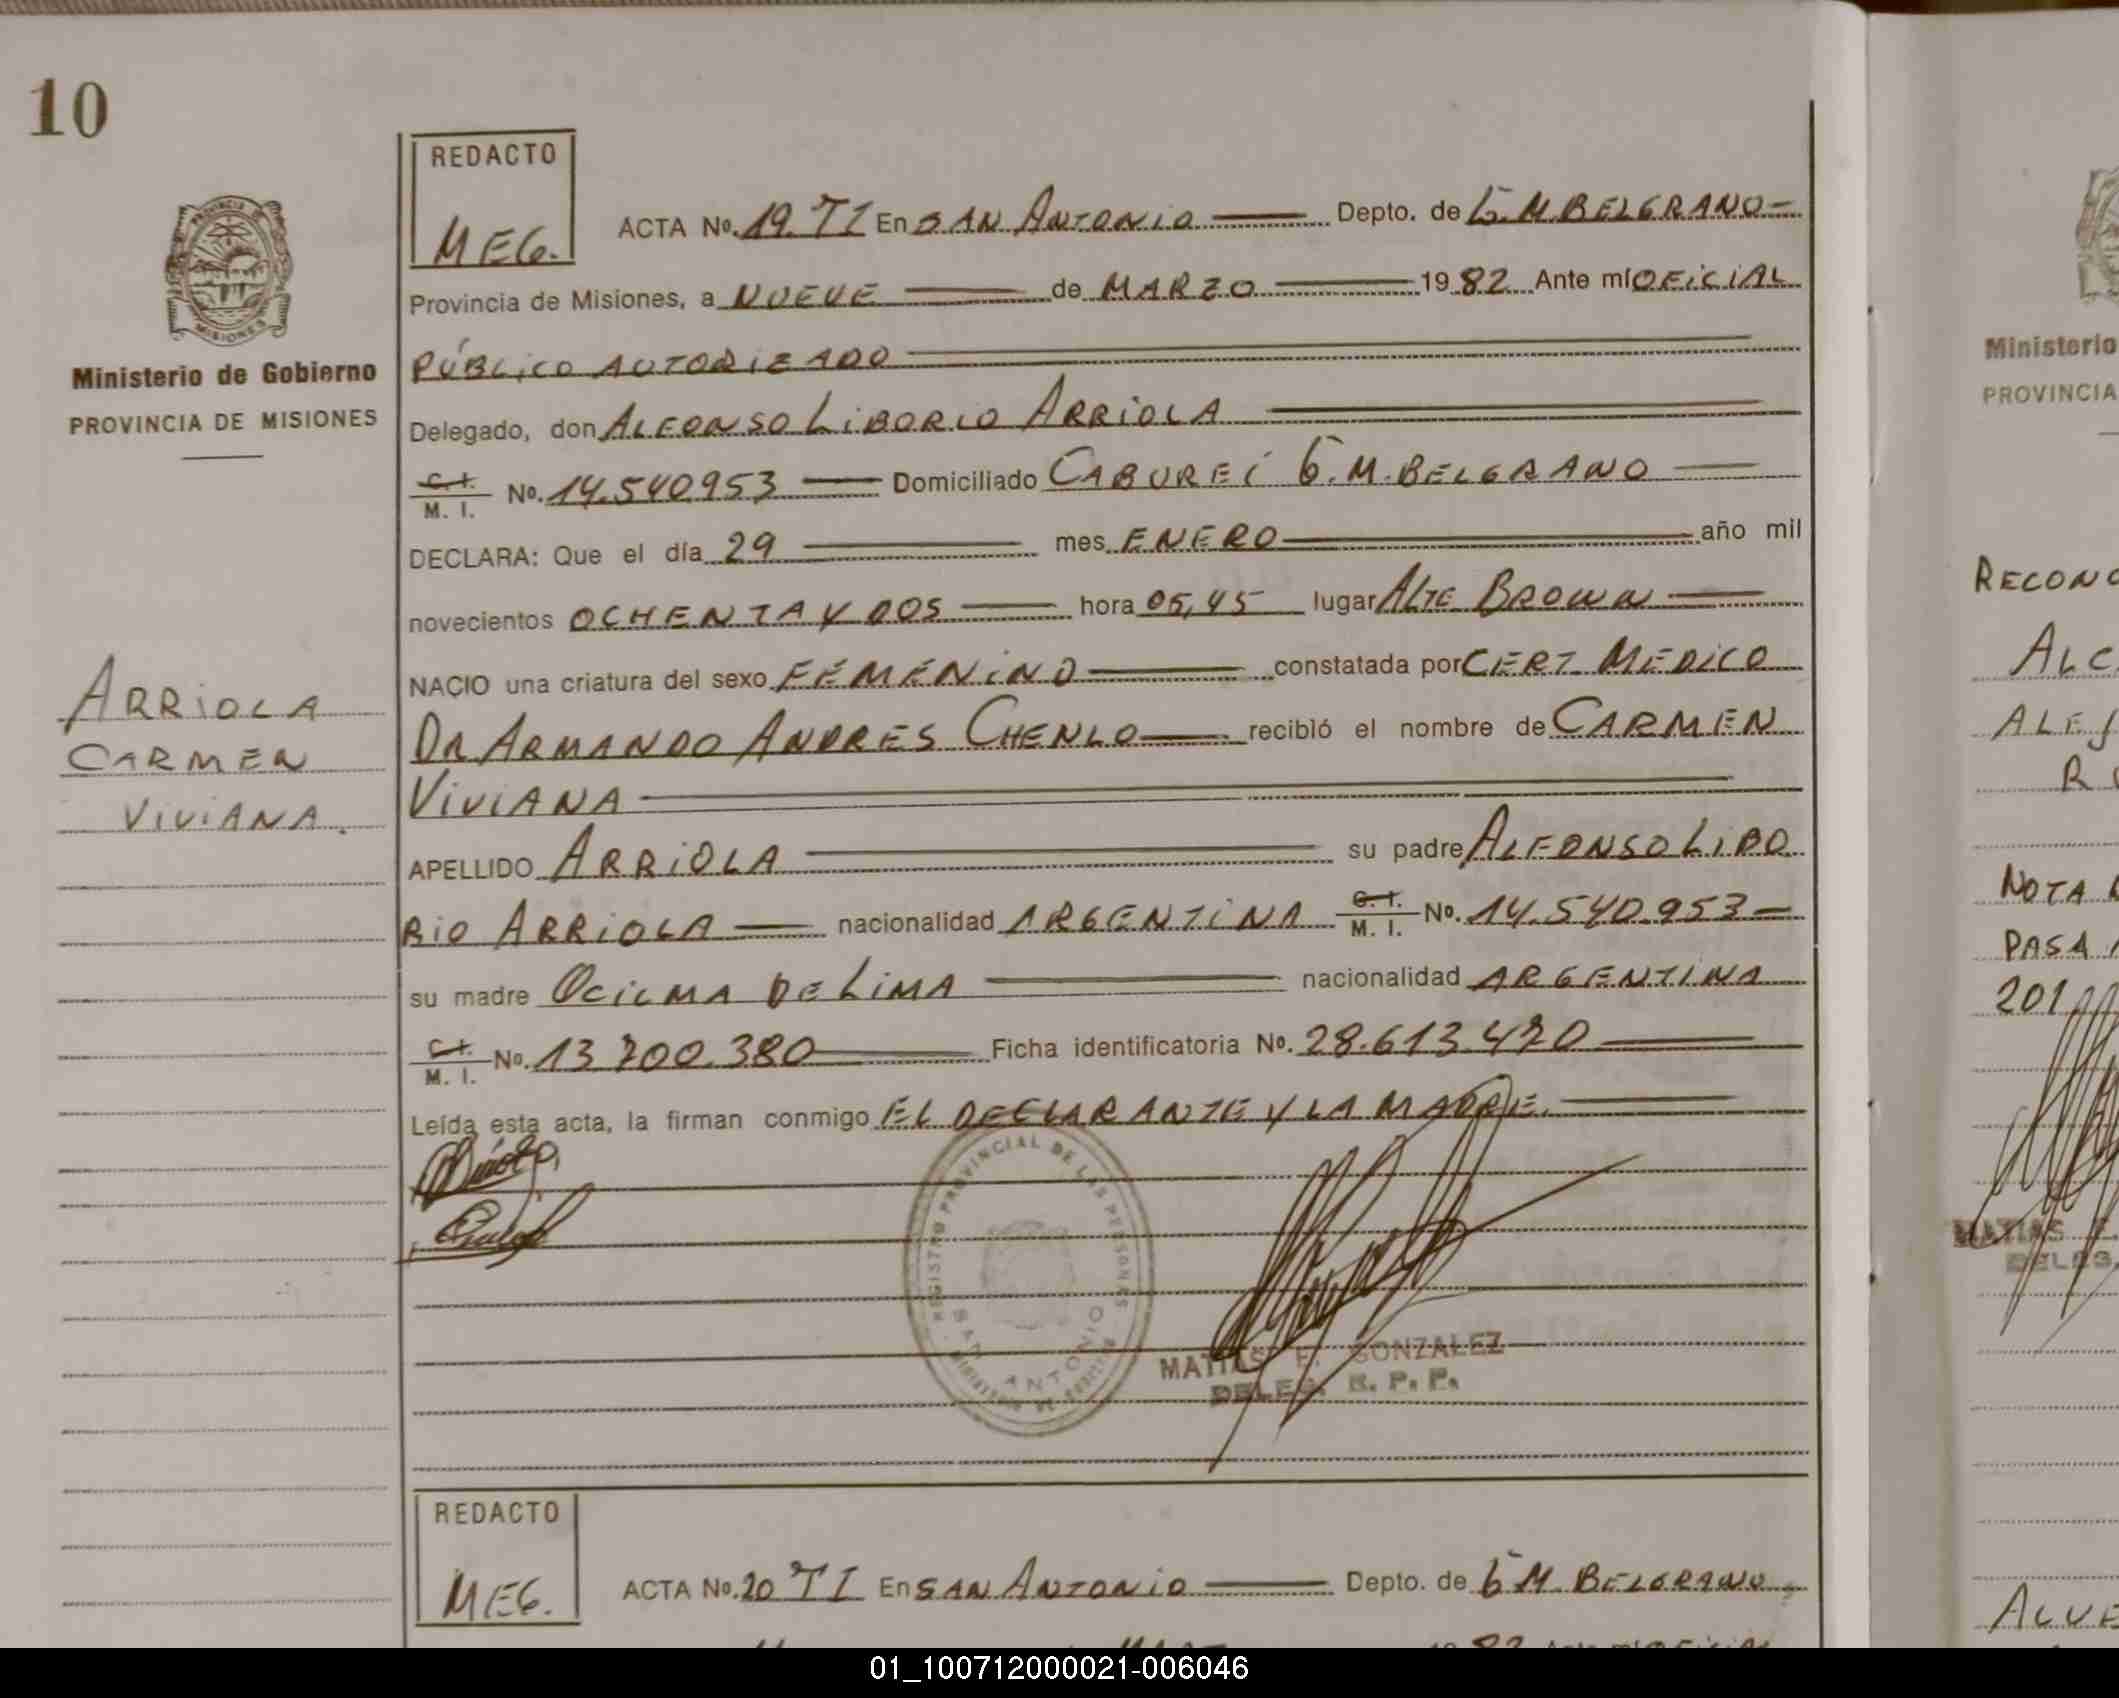 10
REDACTO
MEG.
ACTA No. 19. TI En SAN ANTONIO Depto. de G. M. BELGRANO
Ministerio de Gobierno
PROVINCIA DE MISIONES
Provincia de Misiones, a NUEVE de MARZO 1982 Ante mí OFICIAL
PÚBLICO AUTORIZADO
Delegado, don ALFONSO LIBORIO ARRIOLA
C. I.
M. I. No. 14.540953 Domiciliado CABUREÍ G. M. BELGRANO
DECLARA: Que el día 29 mes ENERO año mil
novecientos OCHENTA Y DOS hora 05,45 lugar ALTE BROWN
NACIO una criatura del sexo FEMENINO constatada por CERT. MEDICO
DR ARMANDO ANDRES CHENLO recibió el nombre de CARMEN
VIVIANA
ARRIOLA
CARMEN
VIVIANA.
APELLIDO ARRIOLA su padre ALFONSO LIBO
RIO ARRIOLA nacionalidad ARGENTINA C. I. M. I. No. 14.540.953
su madre OCILMA DE LIMA nacionalidad ARGENTINA
C. I.
M. I. No. 13 700.380 Ficha identificatoria No. 28.613.470
Leída esta acta, la firman conmigo EL DECLARANTE Y LA MADRE.
REGISTRO PROVINCIAL DE LAS PERSONAS
SAN ANTONIO
MATIAS F. GONZALEZ
DELEG. R. P. P.
REDACTO
MEG.
ACTA No. 20 TI En SAN ANTONIO Depto. de G M. BELGRANO
Ministerio
PROVINCIA
RECONO
ALC
ALEJ
NOTA R
PASA
201
MATIAS F.
DELEG.
ALVE
01_100712000021-006046